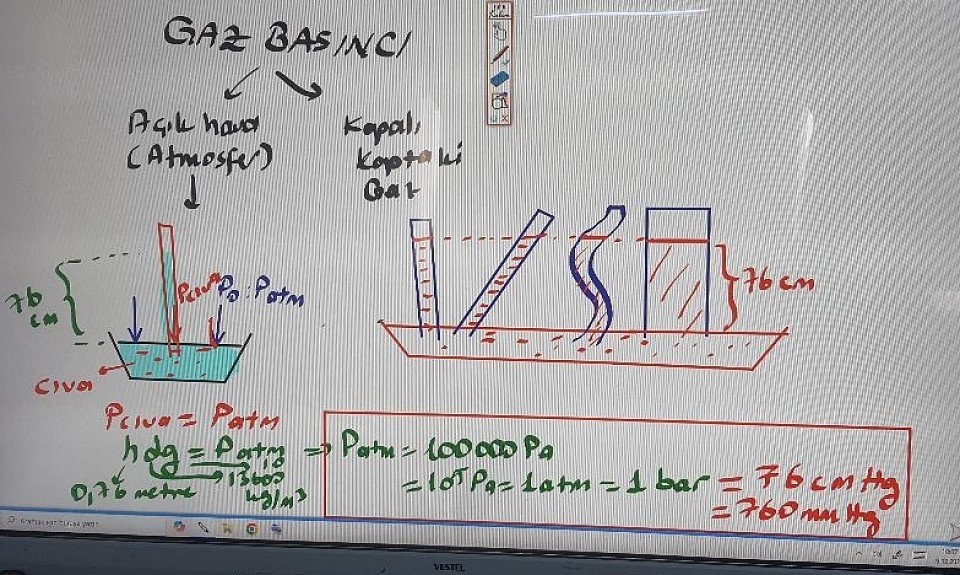 GAZ BASINCI
Açık hava
(Atmosfer)
Kapalı
Kaptaki
Gaz
76
cm
Pciva
P0 = Patm
Civa
76 cm
Pciva = Patm
hdg = Patm => Patm = 100000 Pa
10
13600
kg/m³
0,76 metre
= 10⁵ Pa = 1 atm = 1 bar = 76 cm Hg
= 760 mm Hg
VESTEL